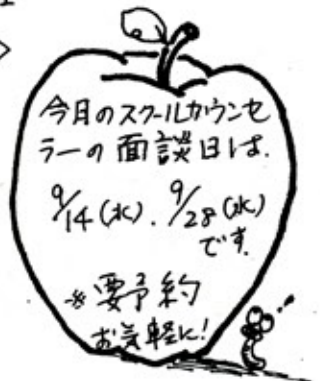 今月のスクールカウンセ
ラーの面談日は、
9/14(水)、9/28(水)
です。
※要予約
お気軽に!